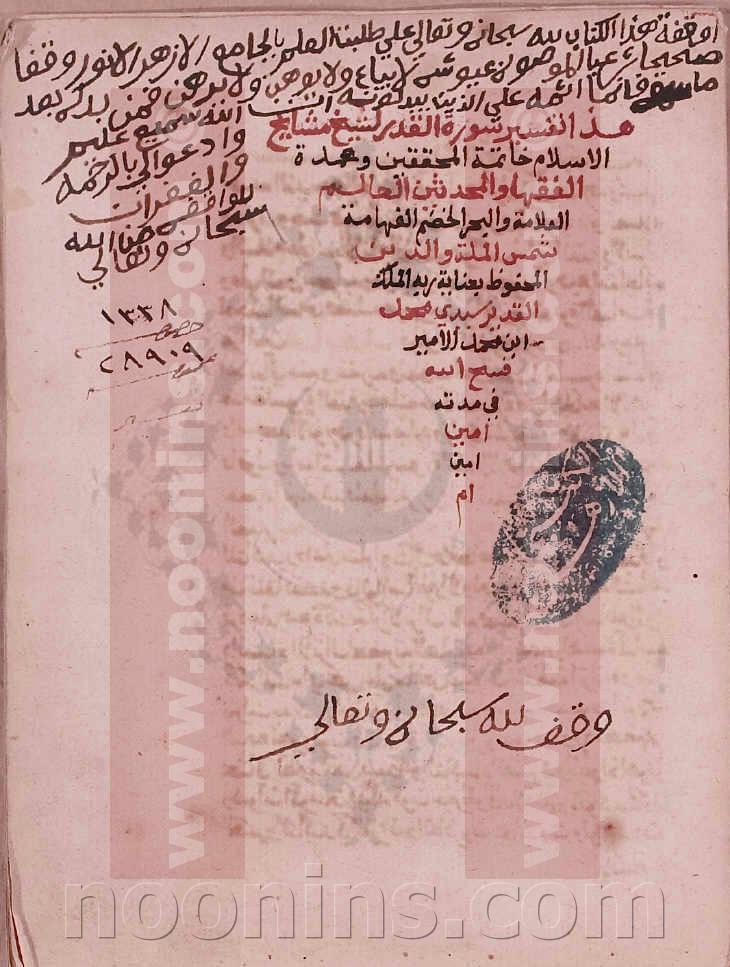 اوقفة هذا الكتاب لله سبحانه وتعالي علي طلبة العلم بالجامع الازهر الانور وقفا
صحيحا شرعيا لا يباع ولا يوهب ولا يرهن فمن بدله بعد
ما سمعه فانما اثمه علي الذين يبدلونه ان
الله سميع عليم
وادعوا لي بالرحمة
والغفران
للواقف من الله
سبحانه وتعالي
١٣٣٨
٢٨٩٠٩
هذا تفسير سورة القدر لشيخ مشايخ
الاسلام خاتمة المحققين وعمدة
الفقها والمحدثين العالم
العلامة والبحر الخضم الفهامة
شمس الملة والدين
المحفوظ بعناية ربه الملك
القدير سيدي محمد
ابن محمد الامير
فسح الله
في مدته
امين
امين
ام
وقف لله سبحانه وتعالي
www.noonins.com
www.noonins.com
noonins.com